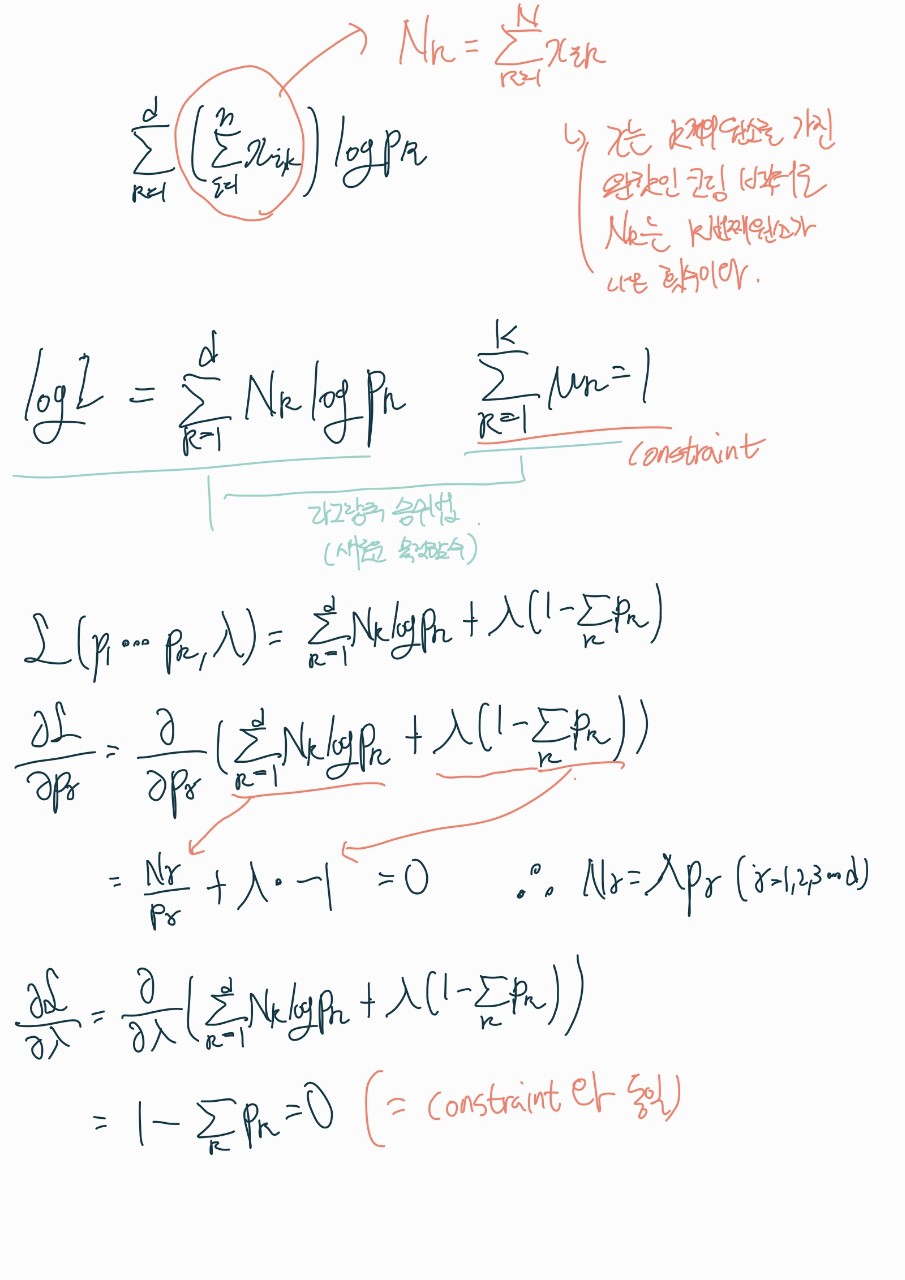 N_k = \sum_{k=1}^{N} x_{ik}
\sum_{k=1}^{d} ( \sum_{i=1}^{n} x_{ik} ) log p_k
↳ k개의 원소를 가진
원핫인코딩 벡터로
N_k는 k번째 원소가
나온 횟수이다.
log L = \sum_{k=1}^{d} N_k log p_k \sum_{k=1}^{K} μ_k = 1
constraint
라그랑주 승수법
(새로운 목적함수)
ℒ(p_1 ... p_k, λ) = \sum_{k=1}^{d} N_k log p_k + λ(1 - \sum_k p_k)
∂ℒ/∂p_r = ∂/∂p_r ( \sum_{k=1}^{d} N_k log p_k + λ(1 - \sum_k p_k) )
= N_r/p_r + λ · -1 = 0 ∴ N_r = λp_r (r=1,2,3...d)
∂ℒ/∂λ = ∂/∂λ ( \sum_{k=1}^{d} N_k log p_k + λ(1 - \sum_k p_k) )
= 1 - \sum_k p_k = 0 (= constraint와 동일)